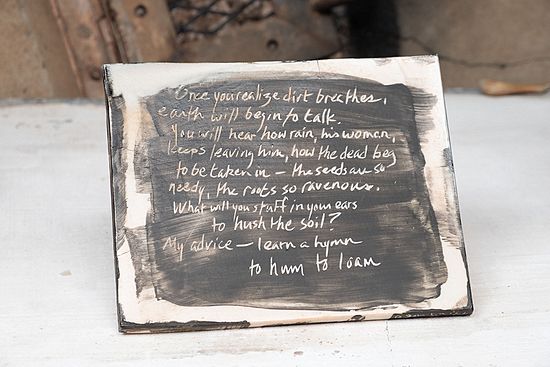 Once you realize dirt breathes,
earth will begin to talk.
You will hear how rain, his woman,
keeps leaving him, how the dead beg
to be taken in — the seeds are so
needy, the roots so ravenous.
What will you stuff in your ears
to hush the soil?
My advice — learn a hymn
to hum to loam